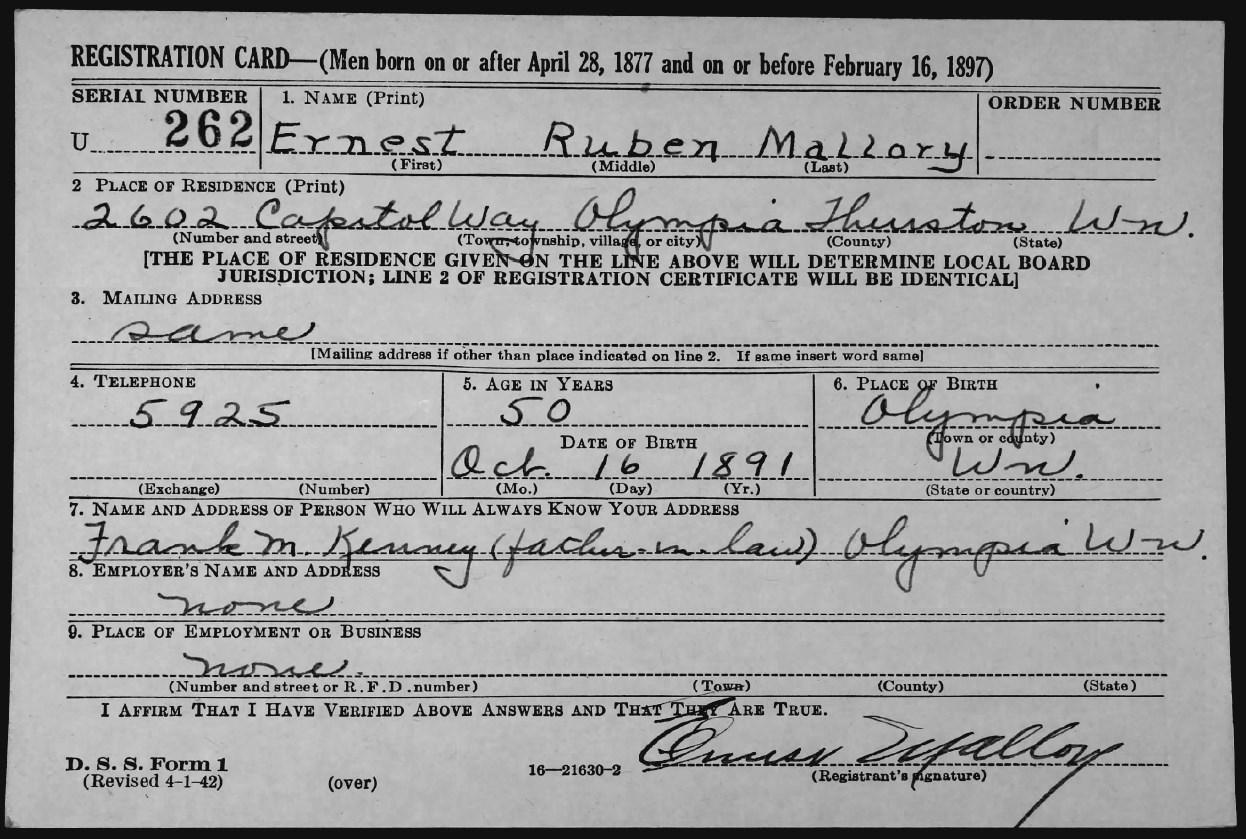 REGISTRATION CARD—(Men born on or after April 28, 1877 and on or before February 16, 1897)
SERIAL NUMBER 1. NAME (Print) ORDER NUMBER
U 262 Ernest Ruben Mallory
(First) (Middle) (Last)
2 PLACE OF RESIDENCE (Print)
2602 Capitol Way Olympia Thurston Wn.
(Number and street) (Town, township, village, or city) (County) (State)
[THE PLACE OF RESIDENCE GIVEN ON THE LINE ABOVE WILL DETERMINE LOCAL BOARD
JURISDICTION; LINE 2 OF REGISTRATION CERTIFICATE WILL BE IDENTICAL]
3. MAILING ADDRESS
same
[Mailing address if other than place indicated on line 2. If same insert word same]
4. TELEPHONE 5. AGE IN YEARS 6. PLACE OF BIRTH
5925 50 Olympia
DATE OF BIRTH (Town or county)
Oct. 16 1891 Wn.
(Exchange) (Number) (Mo.) (Day) (Yr.) (State or country)
7. NAME AND ADDRESS OF PERSON WHO WILL ALWAYS KNOW YOUR ADDRESS
Frank M. Kenney (father-in-law) Olympia Wn.
8. EMPLOYER'S NAME AND ADDRESS
none
9. PLACE OF EMPLOYMENT OR BUSINESS
none.
(Number and street or R. F. D. number) (Town) (County) (State)
I AFFIRM THAT I HAVE VERIFIED ABOVE ANSWERS AND THAT THEY ARE TRUE.
Ernest Mallory
D. S. S. Form 1
(Revised 4-1-42) (over) 16—21630-2 (Registrant's signature)